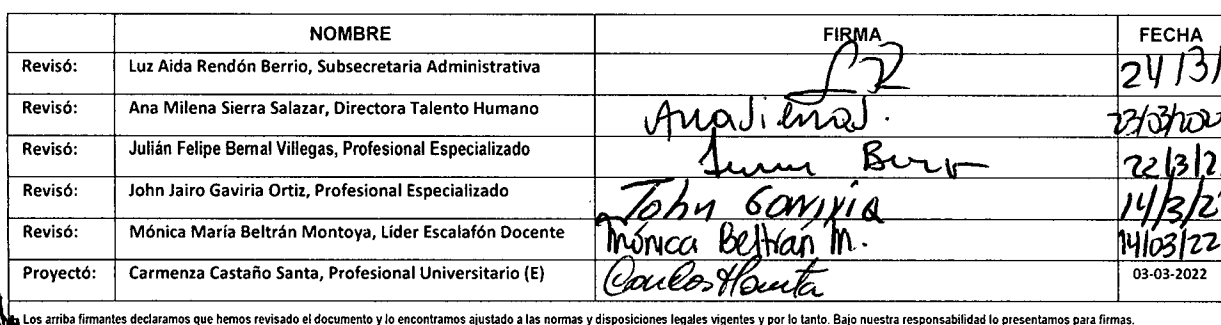 NOMBRE FIRMA FECHA
Revisó: Luz Aida Rendón Berrio, Subsecretaria Administrativa 24/3/
Revisó: Ana Milena Sierra Salazar, Directora Talento Humano
Revisó: Julián Felipe Bernal Villegas, Profesional Especializado 22/3/2
Revisó: John Jairo Gaviria Ortiz, Profesional Especializado John Gaviria 14/3/2
Revisó: Mónica María Beltrán Montoya, Líder Escalafón Docente Mónica Beltrán M. 14/03/22
Proyectó: Carmenza Castaño Santa, Profesional Universitario (E) 03-03-2022
Los arriba firmantes declaramos que hemos revisado el documento y lo encontramos ajustado a las normas y disposiciones legales vigentes y por lo tanto. Bajo nuestra responsabilidad lo presentamos para firmas.